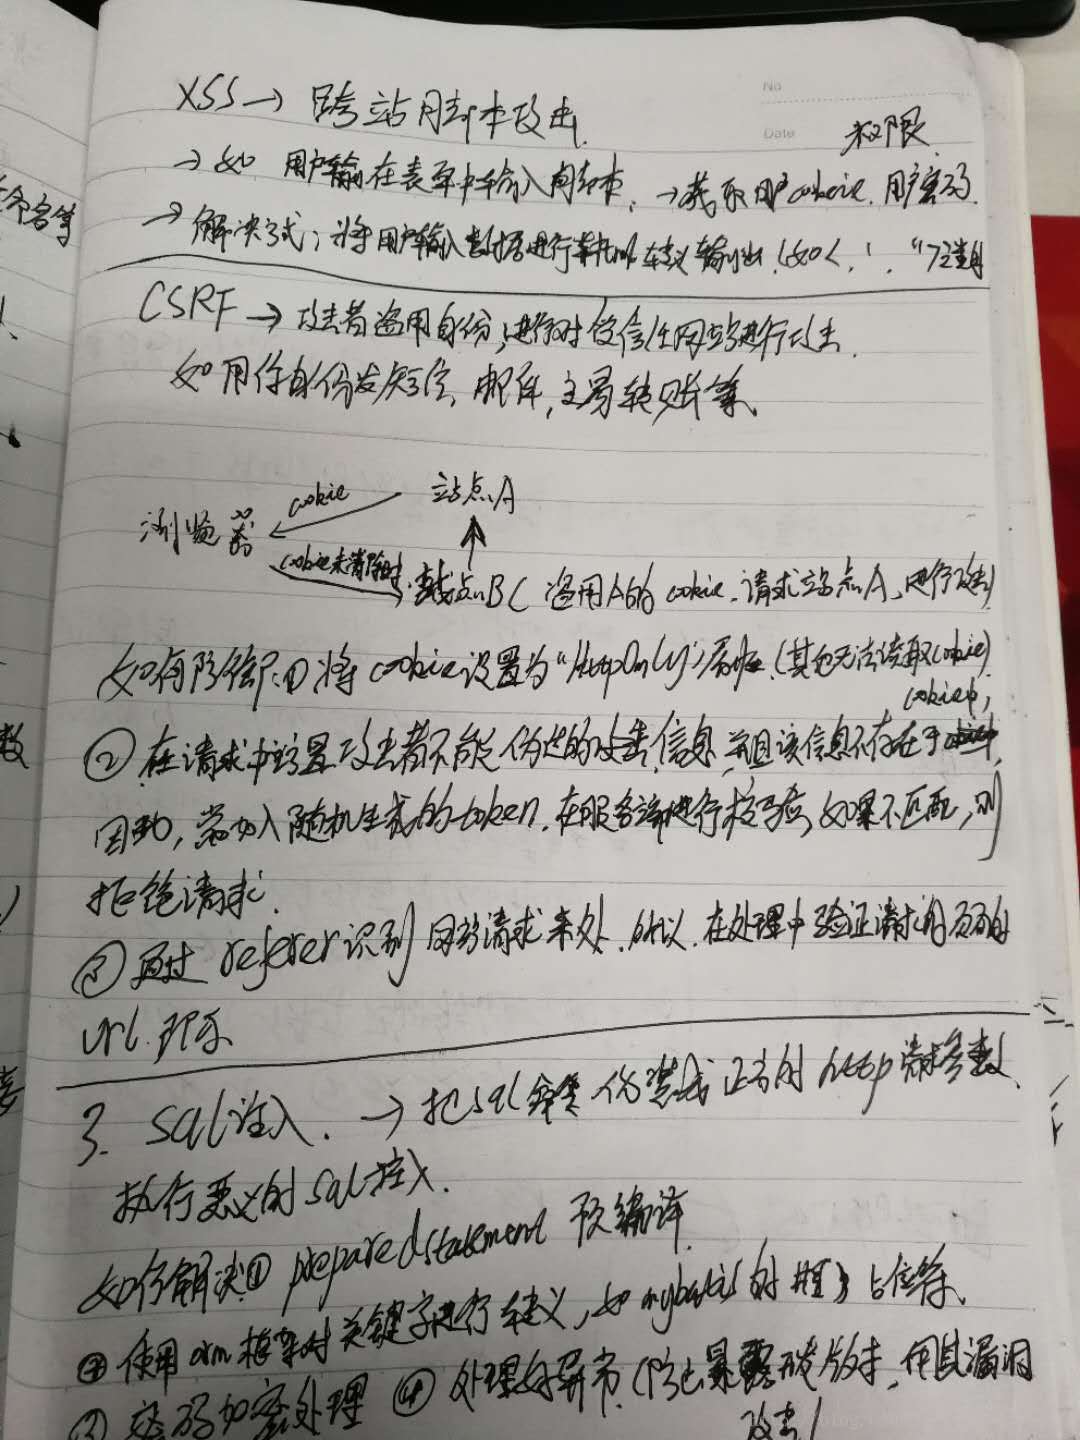 No
Date
XSS → 跨站脚本攻击
权限
→ 如 用户输在表单中输入脚本, → 获取用户cookie. 用户密码.
→ 解决方式; 将用户输入数据进行 转义输出. (如<, ', "
CSRF → 攻击者盗用身份, 进行对 信任网站进行攻击.
如用你身份发短信, 邮件, 交易转账等.
cookie 站点A
浏览器
cookie未清除时. 站点B( 盗用A的 cookie. 请求站点A, 进行攻击)
如何防御: ① 将 cookie设置为"HttpOnly" (其他无法读取cookie)
cookie中,
② 在请求中放置攻击者不能伪造的 信息, 并且该信息不存在于
因此, 需加入随机生成的token. 在服务端进行校验, 如果不匹配, 则
拒绝请求.
③ 通过 referer识别 网站请求来处, 所以, 在处理中验证请求的页面的
url.
3. sql注入. → 把sql 伪装成正常的http 请求参数.
执行恶意的sql注入.
如何解决① preparedstatement 预编译
② 使用orm框架时关键字进行转义, 如 mybatis的 #{} 占位符.
③ 密码加密处理 ④ 处理好异常 (防止暴露 版本, 用其漏洞
攻击)